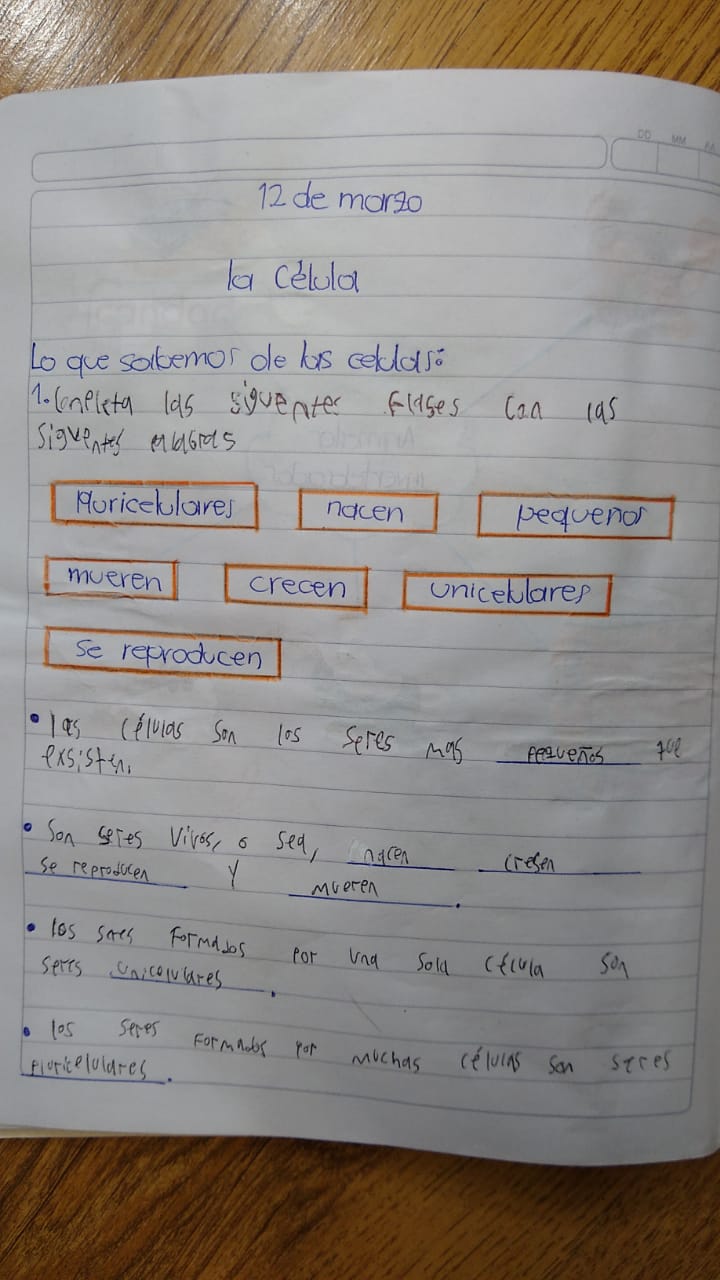 DD MM AA
12 de marzo
la Célula
Lo que sabemos de las celulas:
1. Conpleta las siguentes frases con las
siguentes palabras
Pluricelulares nacen pequeños
mueren crecen unicelulares
se reproducen
• las células son los seres mas pequeños que
exsisten.
• Son seres vivos, o sea, nacen cresen
se reproducen y mueren.
• los seres formados por una sola célula son
seres unicelulares.
• los seres formados por muchas células son seres
pluricelulares.